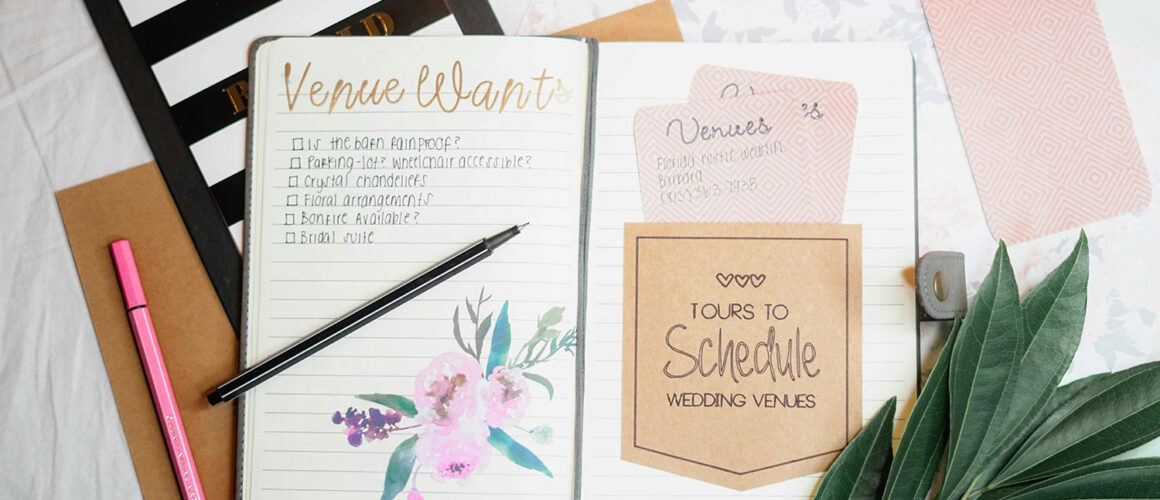 Venue Wants
Is the barn rainproof?
Parking-lot? Wheelchair accessible?
Crystal chandeliers
Floral arrangements
Bonfire Available?
Bridal suite
Venues
Florida rustic weddin.
Barbara
(813) 363-7935
TOURS TO
Schedule
WEDDING VENUES